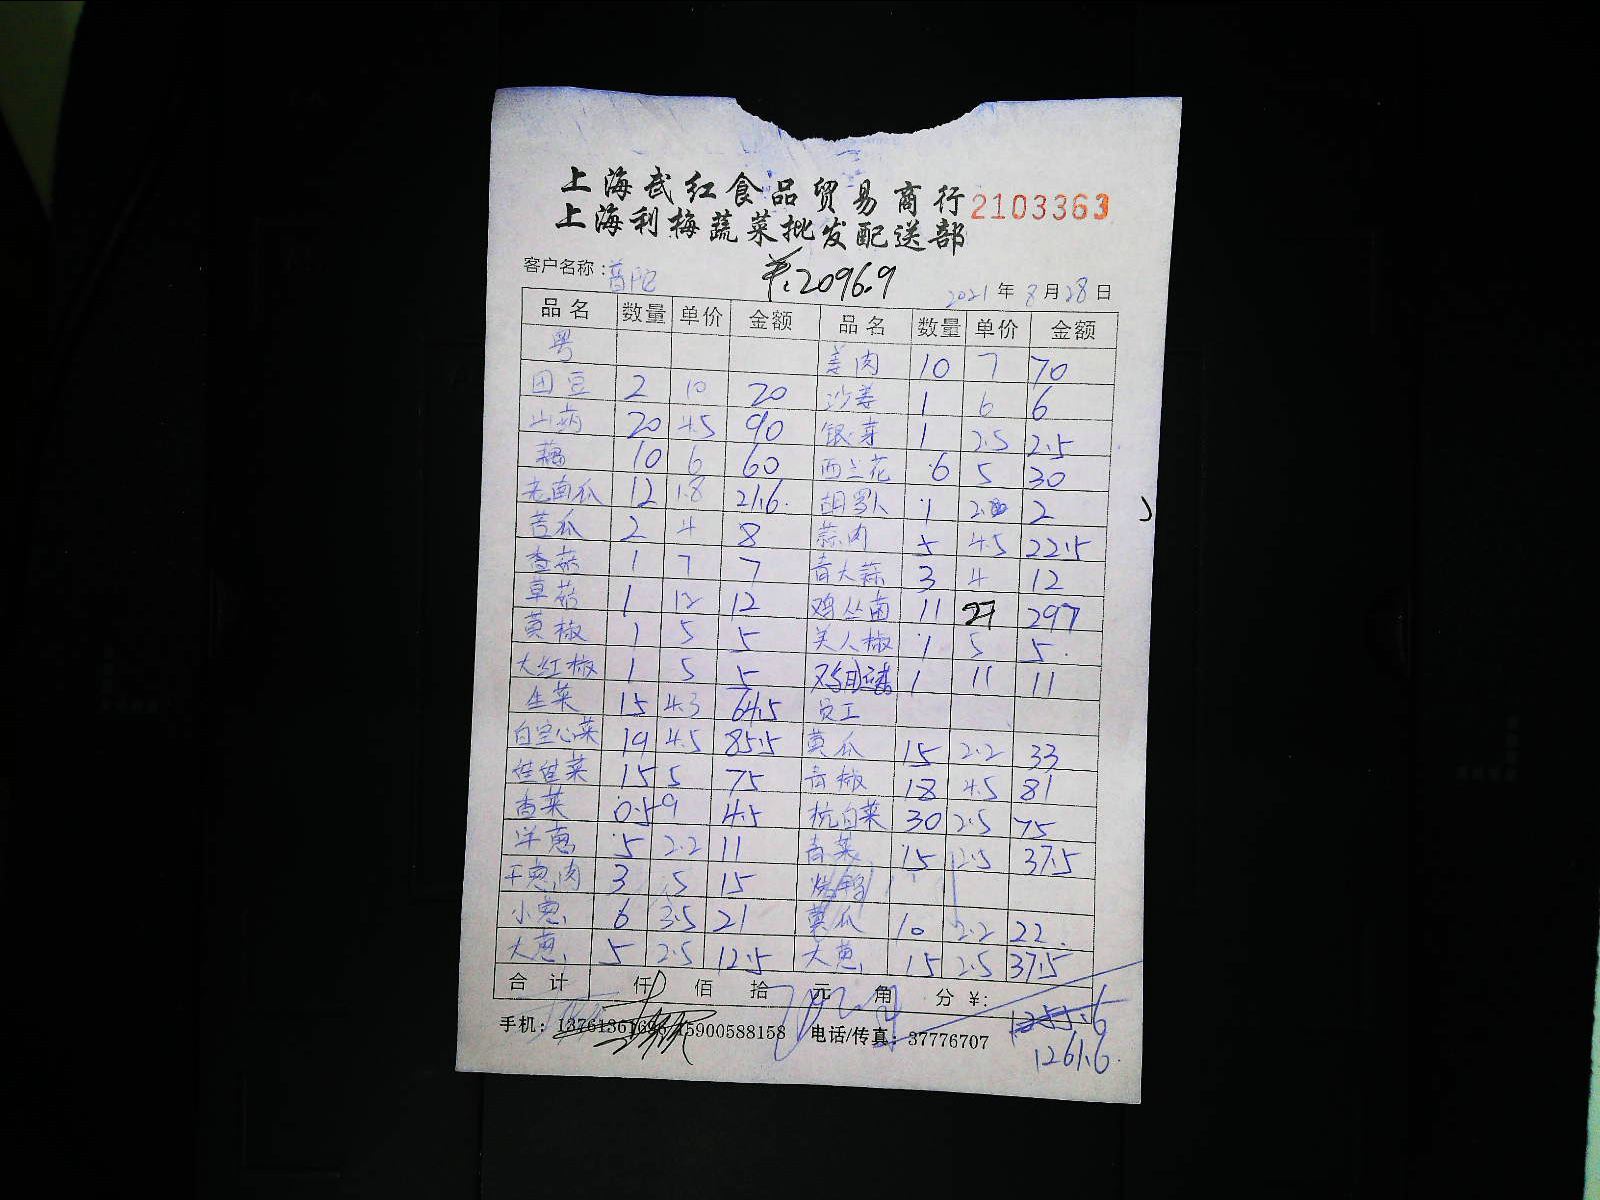 上海武红食品贸易商行 2103363
上海利梅蔬菜批发配送部
客户名称:普陀 ¥:2096.9 2021年8月28日
品名 数量 单价 金额 品名 数量 单价 金额
粤 姜肉 10 7 70
团豆 2 10 20 沙姜 1 6 6
山药 20 4.5 90 银芽 1 2.5 2.5
藕 10 6 60 西兰花 6 5 30
老南瓜 12 1.8 21.6 胡萝卜 1 2 2
苦瓜 2 4 8 蒜肉 5 4.5 22.5
香菇 1 7 7 青大蒜 3 4 12
草菇 1 12 12 鸡丛菌 11 27 297
黄椒 1 5 5 美人椒 1 5 5
大红椒 1 5 5 1 11 11
生菜 15 4.3 64.5 员工
白空心菜 19 4.5 85.5 黄瓜 15 2.2 33
娃娃菜 15 5 75 青椒 18 4.5 81
香菜 0.5 9 4.5 杭白菜 30 2.5 75
洋葱 5 2.2 11 青菜 15 2.5 37.5
干葱肉 3 5 15 烧鸭
小葱 6 3.5 21 黄瓜 10 2.2 22
大葱 5 2.5 12.5 大葱 15 2.5 37.5
合计 仟 佰 拾 元 角 分 ¥: 1255.6
手机: 13761361696 15900588158 电话/传真: 37776707
1261.6